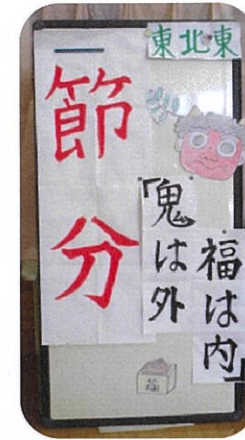 東北東
節分
「鬼は外
福は内」
福